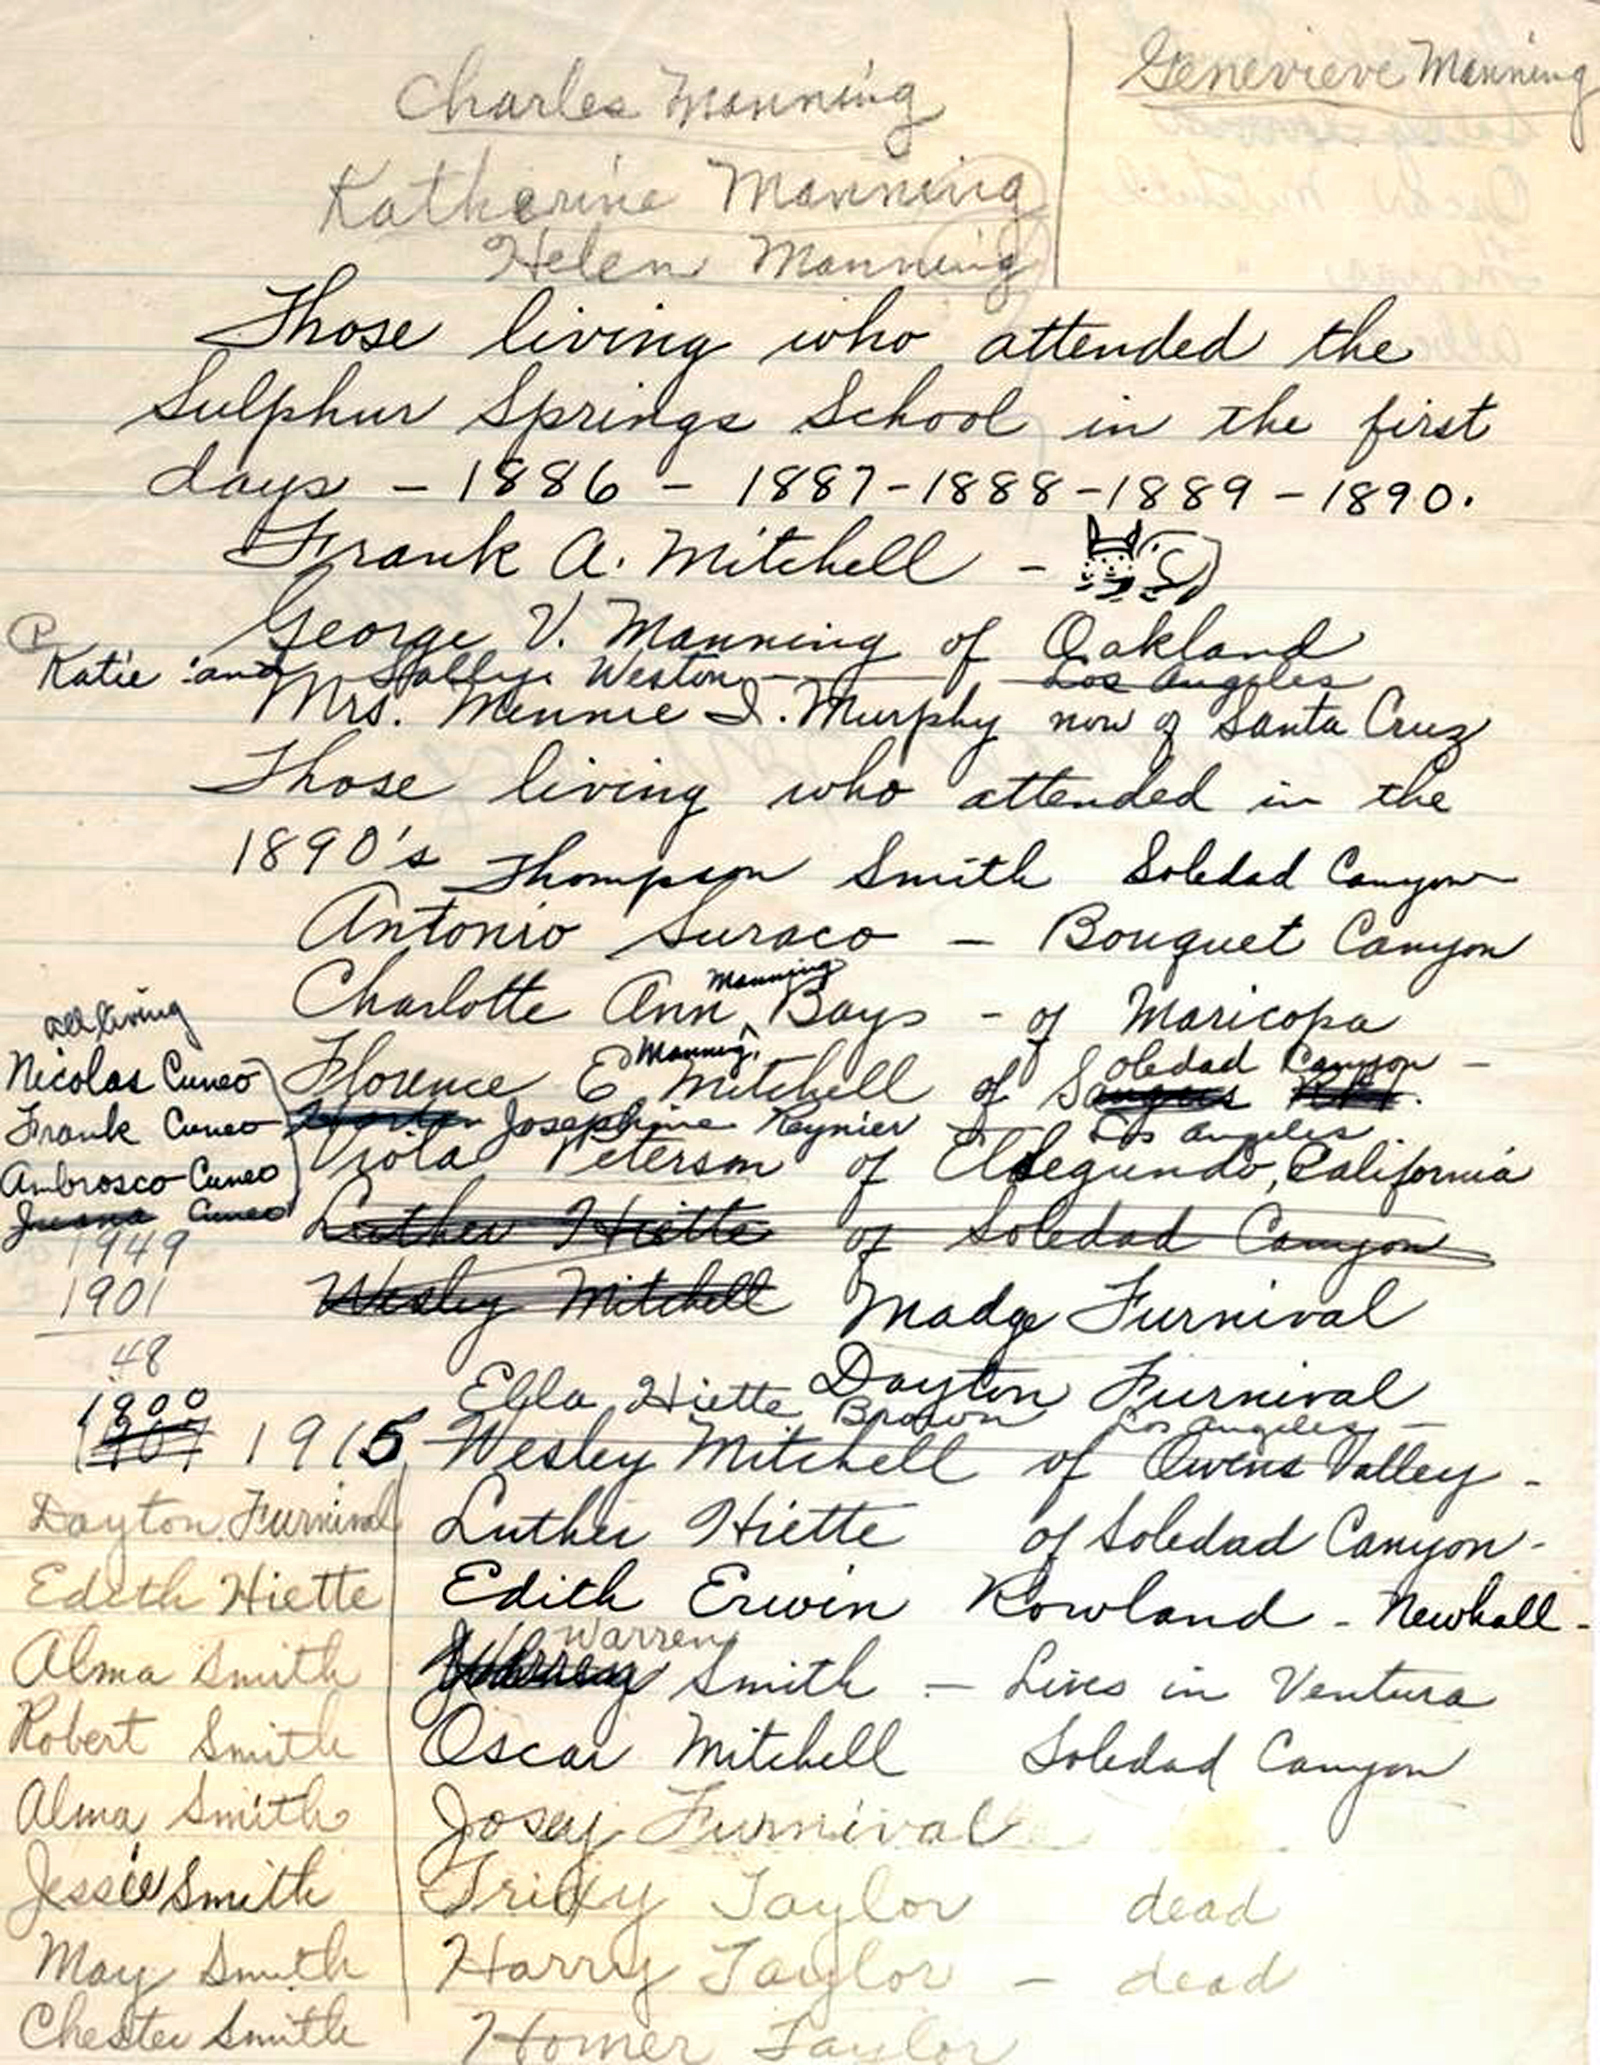 Charles Manning
Genevieve Manning
Katherine Manning
Helen Manning
Those living who attended the
Sulphur Springs School in the first
days - 1886 - 1887-1888-1889-1890.
Frank A. Mitchell -
George V. Manning of Oakland
Katie and Sally Weston - of Los Angeles
Mrs. Minnie I. Murphy now of Santa Cruz
Those living who attended in the
1890's Thompson Smith Soledad Canyon
Antonio Suraco - Bouquet Canyon
Manning
Charlotte Ann Bays - of Maricopa
Manning
Florence E Mitchell of Soledad Canyon -
Josephine Reynier - Los Angeles
Viola Peterson of El Segundo, California
Luther Hiette of Soledad Canyon
Wesley Mitchell Madge Furnival
Dayton Furnival
Ella Hiette Brown Los Angeles -
Wesley Mitchell of Owens Valley -
Luther Hiette of Soledad Canyon -
Edith Erwin Rowland - Newhall -
Warren
Smith - Lives in Ventura
Oscar Mitchell Soledad Canyon
Josey Furnival
Trixy Taylor dead
Harry Taylor - dead
Homer Taylor
all living
Nicolas Cuneo
Frank Cuneo
Ambrosco Cuneo
Juana Cuneo
1949
1901
48
1900
1907 1915
Dayton Furnival
Edith Hiette
Alma Smith
Robert Smith
Alma Smith
Jessie Smith
May Smith
Chester Smith